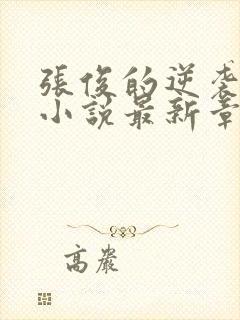 張俊的逆袭
小說最新章
高嚴